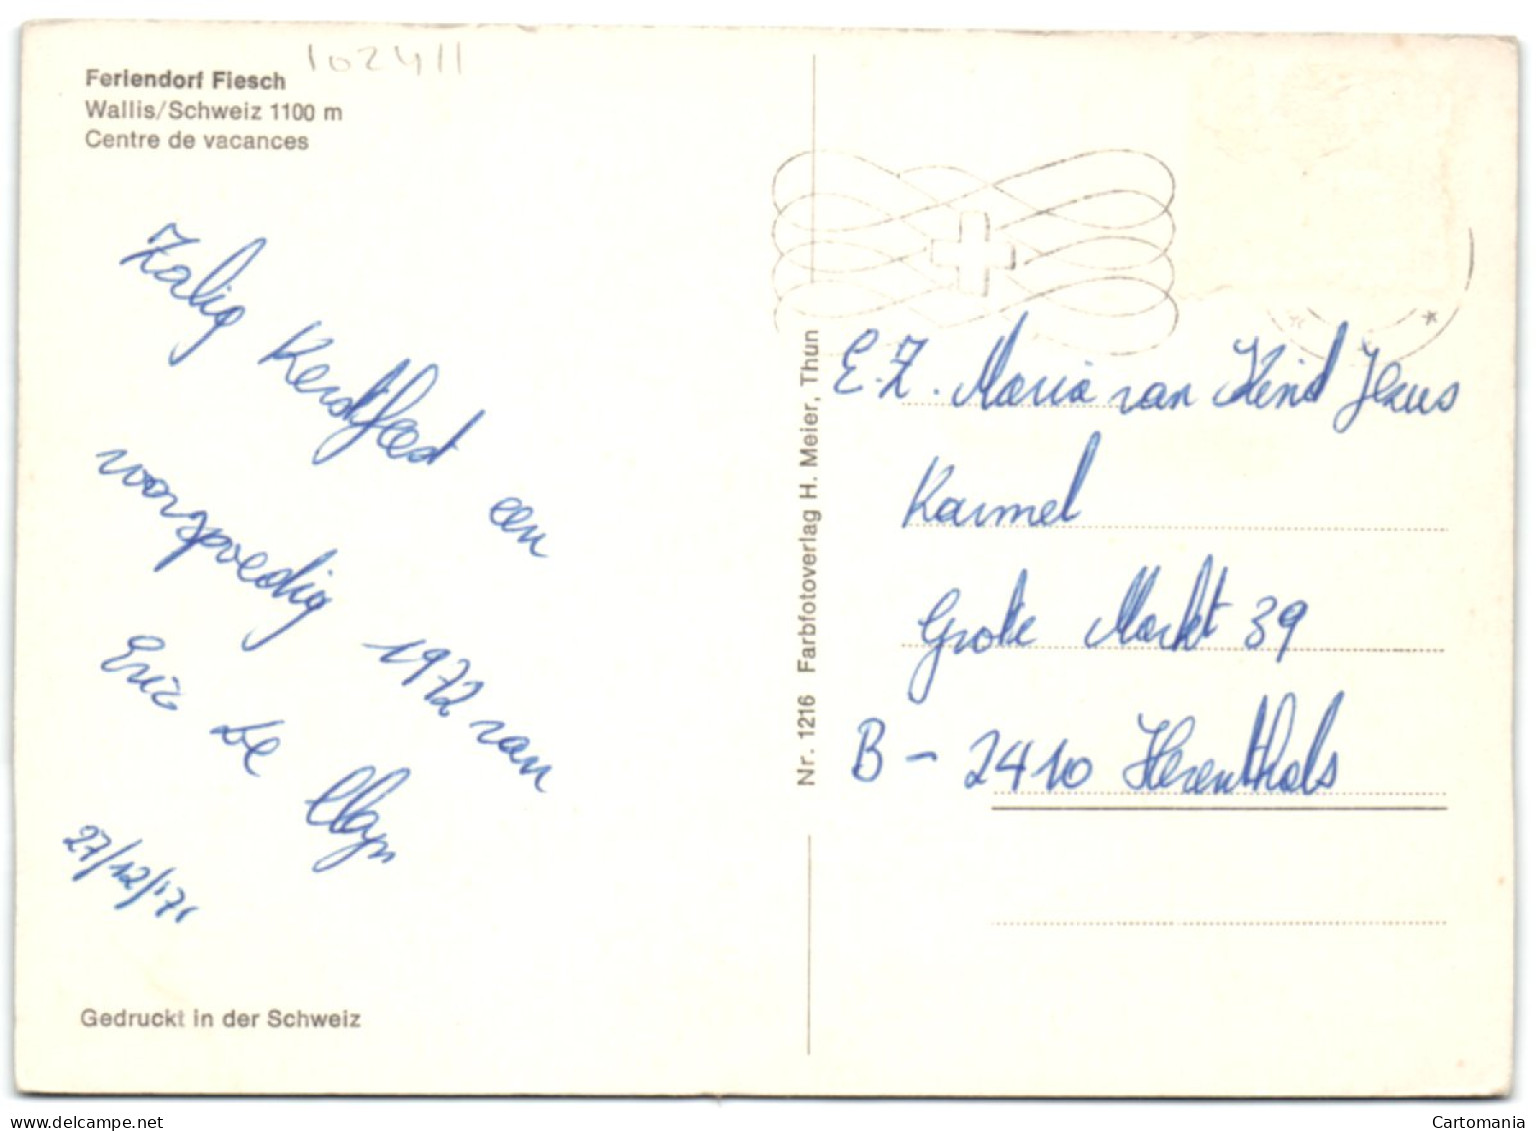 102411
Feriendorf Fiesch
Wallis/Schweiz 1100 m
Centre de vacances
Zalig Kerstfeest en
voorspoedig 1972 van
Eric De
27/12/'71
Gedruckt in der Schweiz
Nr. 1216 Farbfotoverlag H. Meier, Thun
E.Z. Maria van Kind Jezus
Karmel
Grote Markt 39
B - 2410 Herenthals
delcampe.net
Cartomania